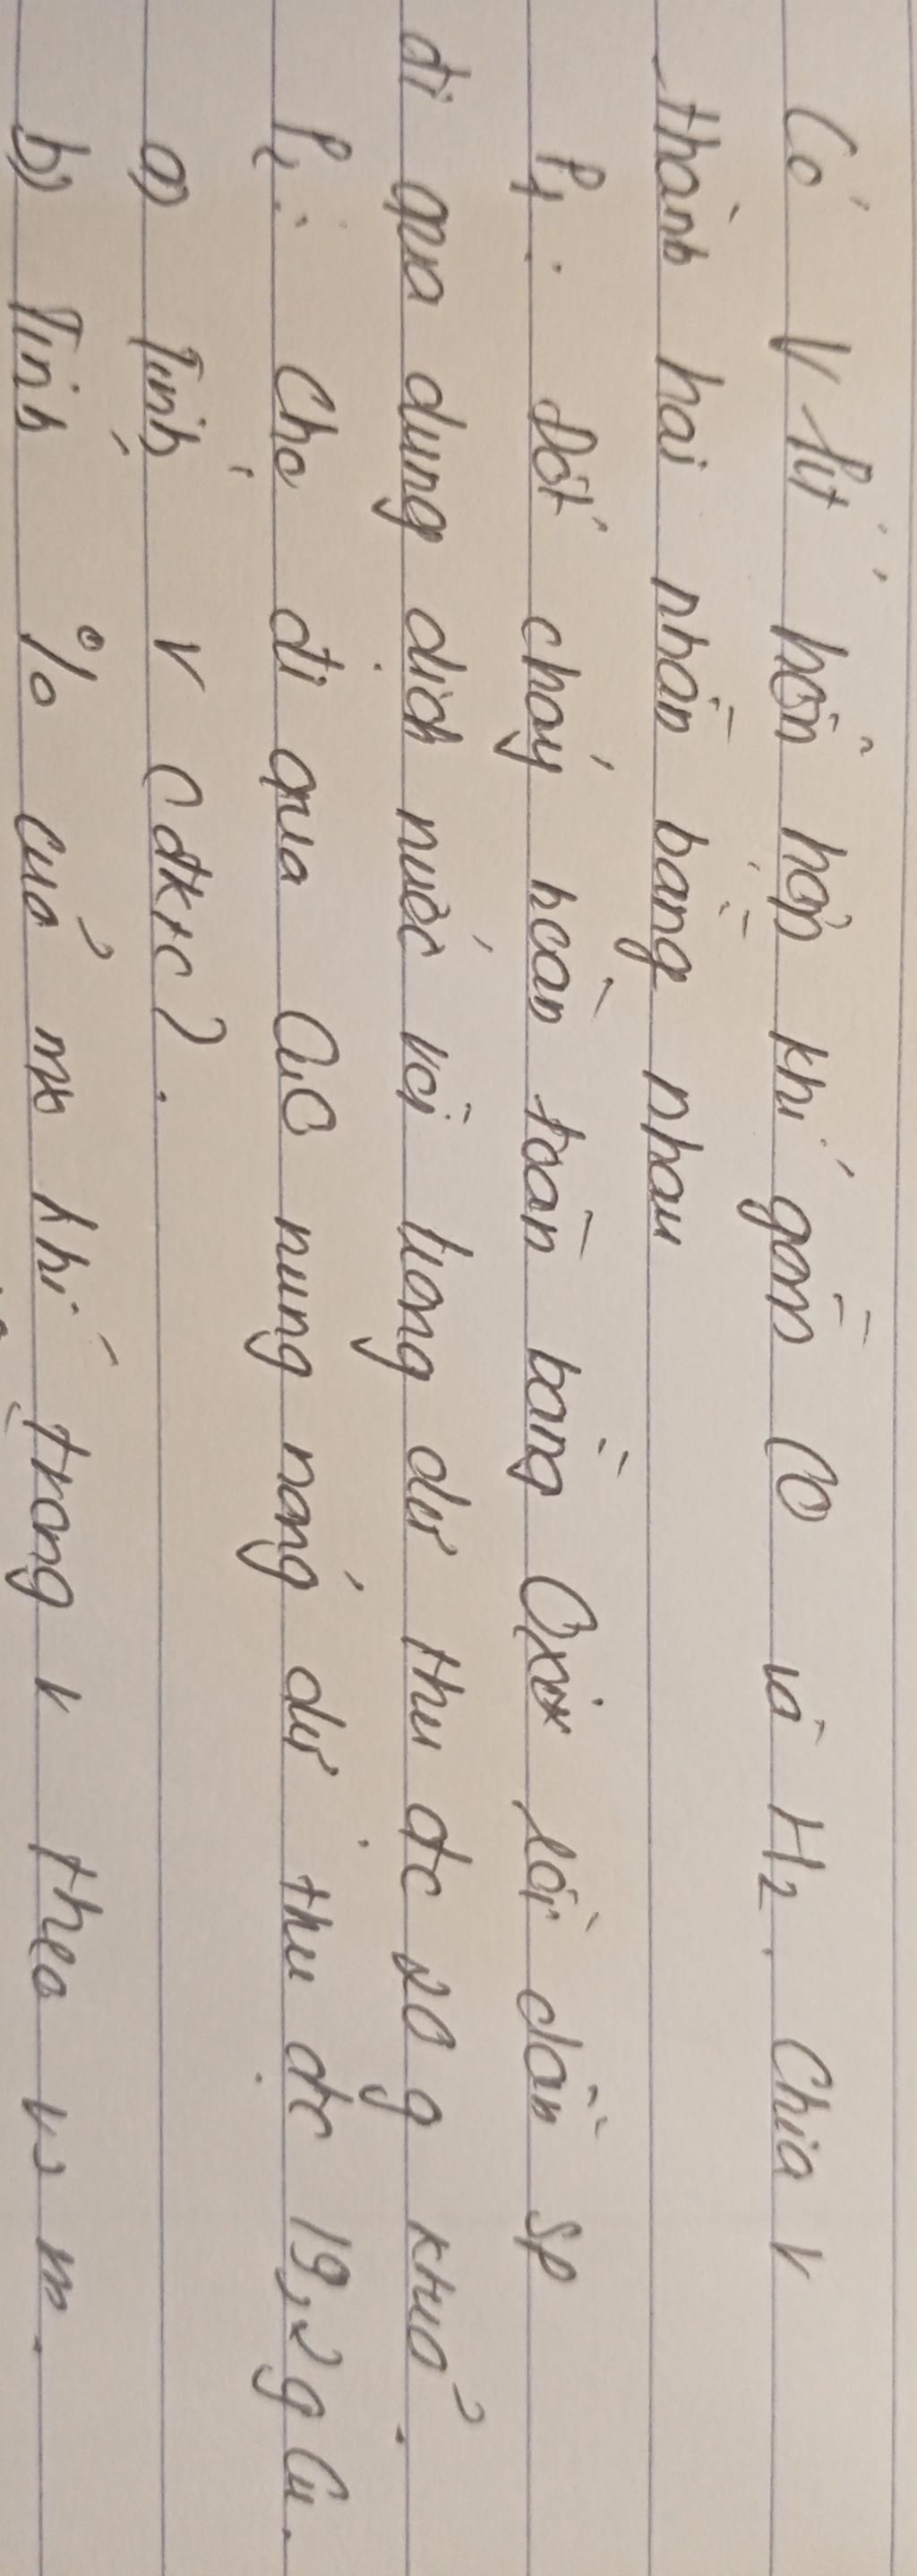 Có V lít hỗn hợp khí gồm CO và H2. Chia V
thành hai phần bằng nhau
P1: Đốt cháy hoàn toàn bằng Oxi rồi dẫn sp
đi qua dung dịch nước vôi trong dư thu đc 20 g kết tủa.
P2: Cho đi qua CuO nung nóng dư thu đc 19,2g Cu.
a) Tính V (đktc).
b) Tính % của mỗi khí trong V theo V, m.